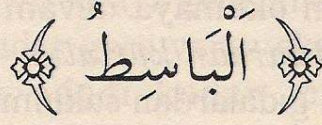 ﴿ اَلْبَاسِطُ ﴾